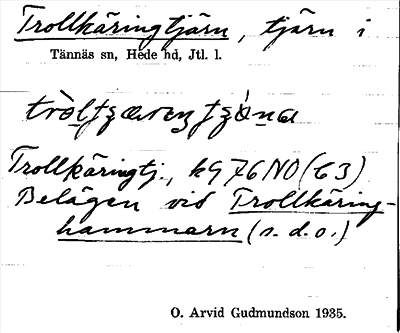 Trollkäringtjärn, tjärn i
Tännäs sn, Hede hd, Jtl. l.
Trollkäringtj., kg 76 NO (C3)
Belägen vid Trollkäring-
hammarn (s.d.o.)
O. Arvid Gudmundson 1935.